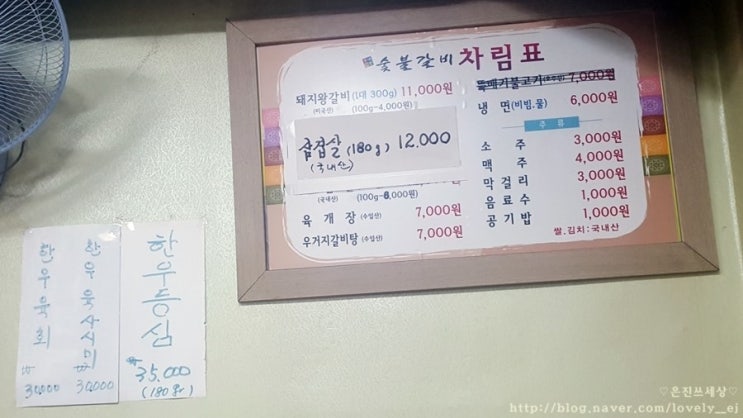 숯불갈비 차림표
돼지왕갈비 (1대 300g) 11,000원
(미국산) (100g-4,000원)
삼겹살 (180g) 12.000
(국내산)
(국내산) (100g-6,000원)
육개장 (수입산) 7,000원
우거지갈비탕 (수입산) 7,000원
뚝배기불고기 (수입산) 7,000원
냉면 (비빔.물) 6,000원
주류
소주 3,000원
맥주 4,000원
막걸리 3,000원
음료수 1,000원
공기밥 1,000원
쌀.김치:국내산
한우육회
₩
30000
한우육사시미
₩
30000
한우등심
₩35.000
(180g)
♡은진쓰세상♡
http://blog.naver.com/lovely__ej